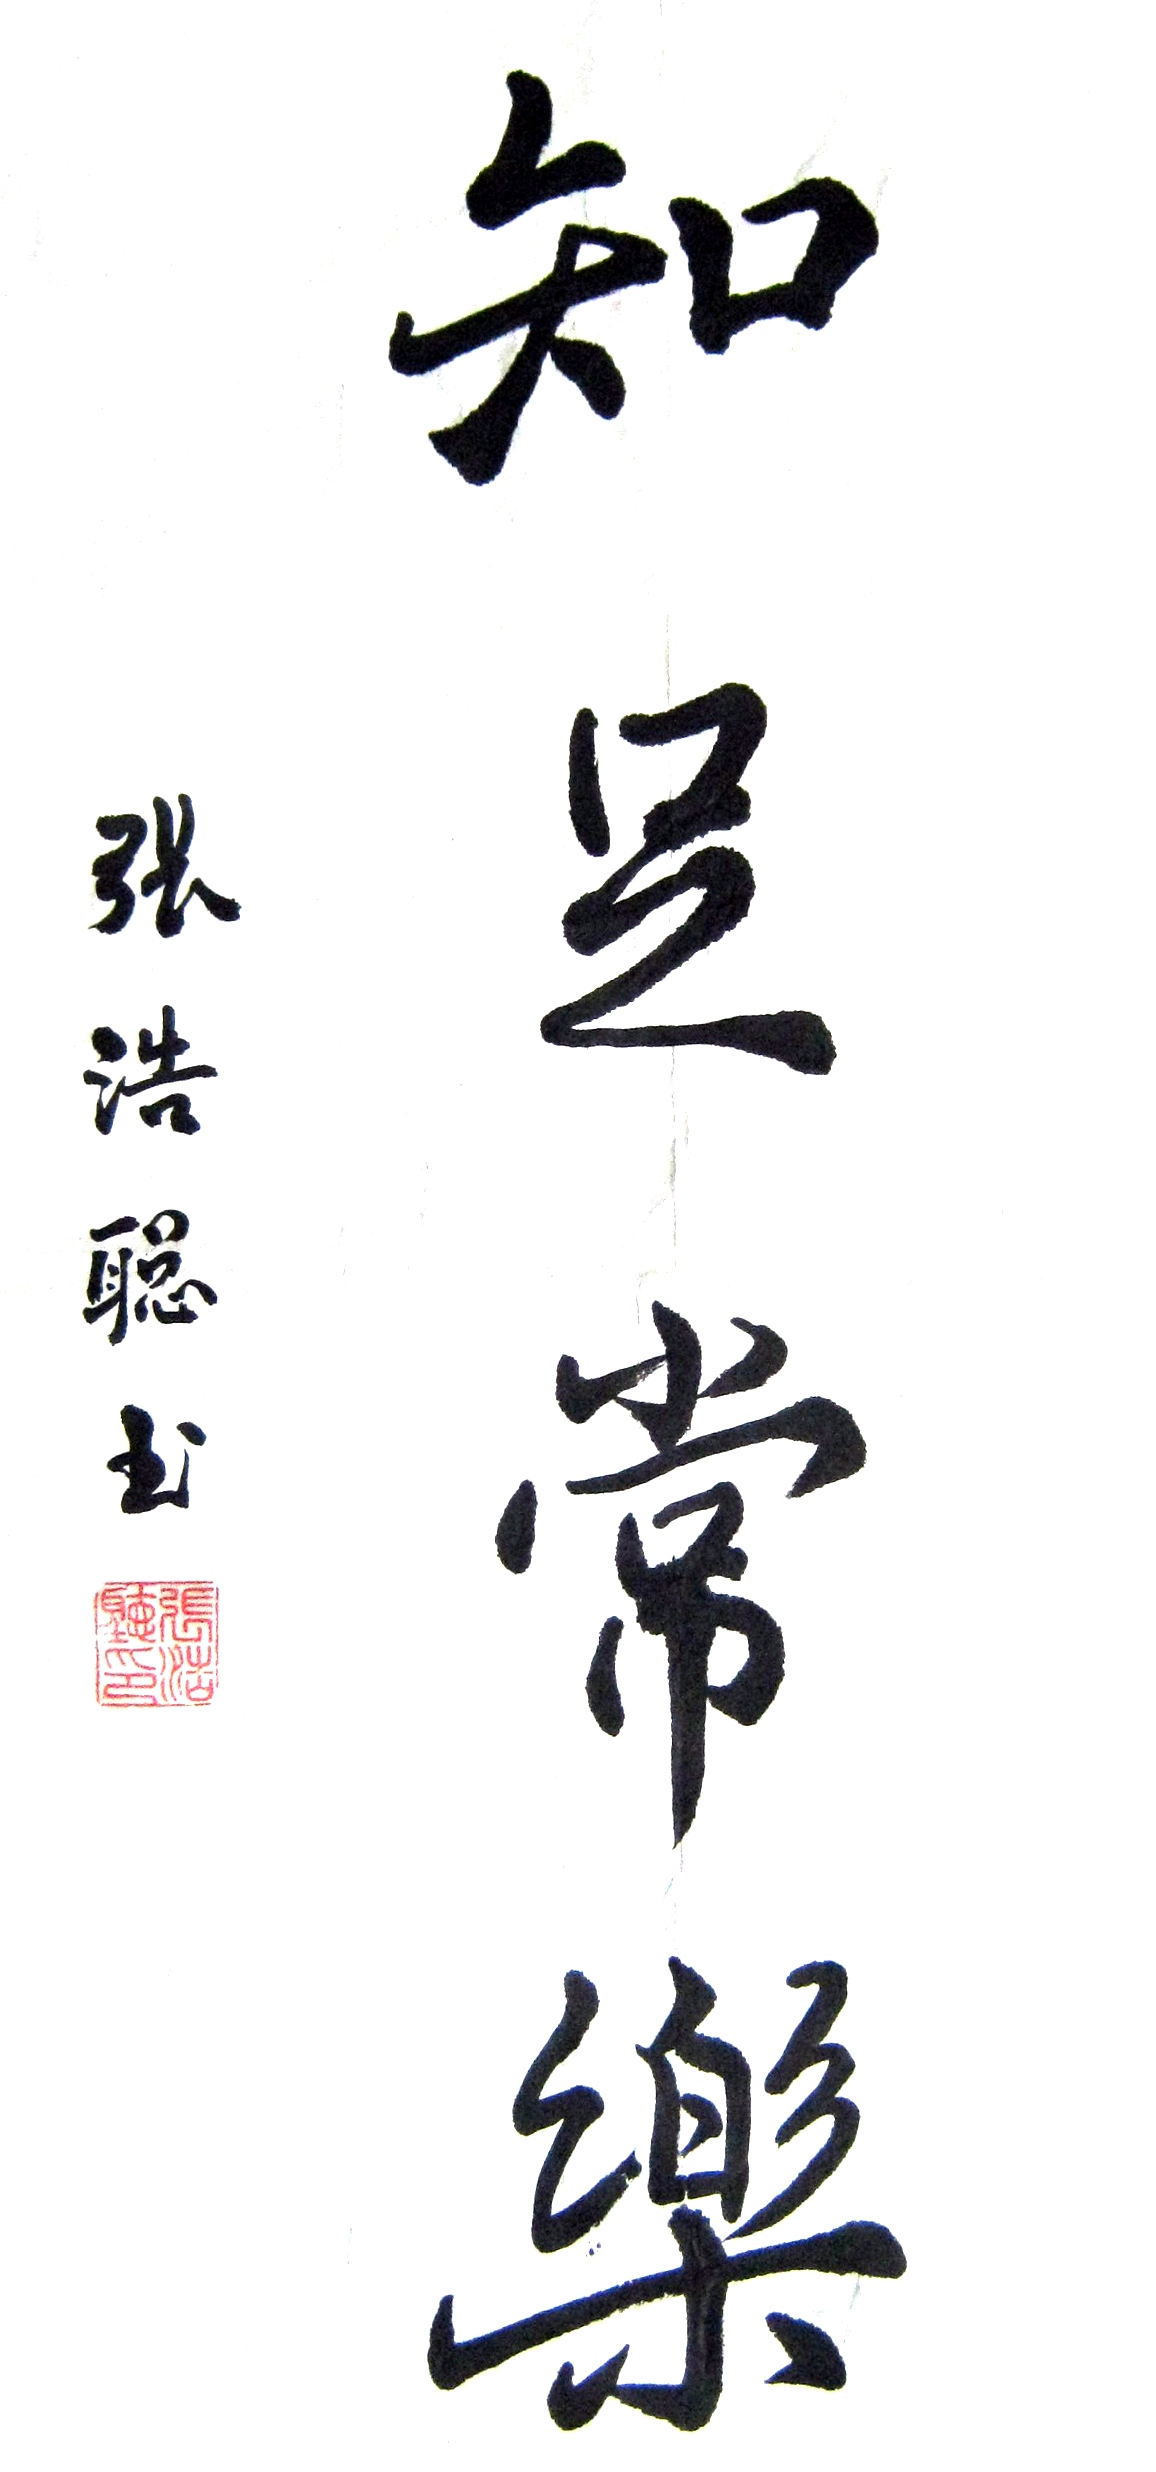 知足常樂
張浩聪书
張浩聰印